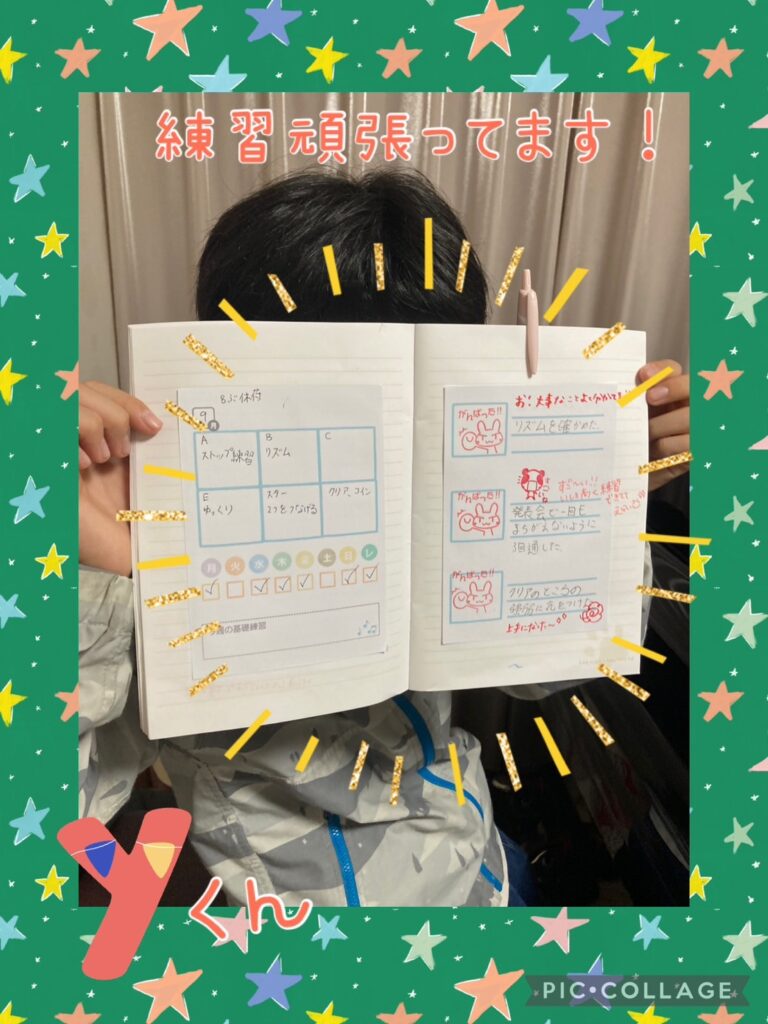 練習頑張ってます！
8ぶ休符
9
月
A
ストップ練習
B
リズム
C
E
ゆっくり
スター
2つをつなげる
クリア、コイン
月 火 水 木 金 土 日 レ
今週の基礎練習
がんばった!!
お！大事なことよく分かてる
リズムを確かめた
がんばった!!
すごーい!!
練習
できてて
発表会で一回も
まちがえないように
3回通した
がんばった!!
クリアのところの
上手になった〜
yくん
PIC•COLLAGE